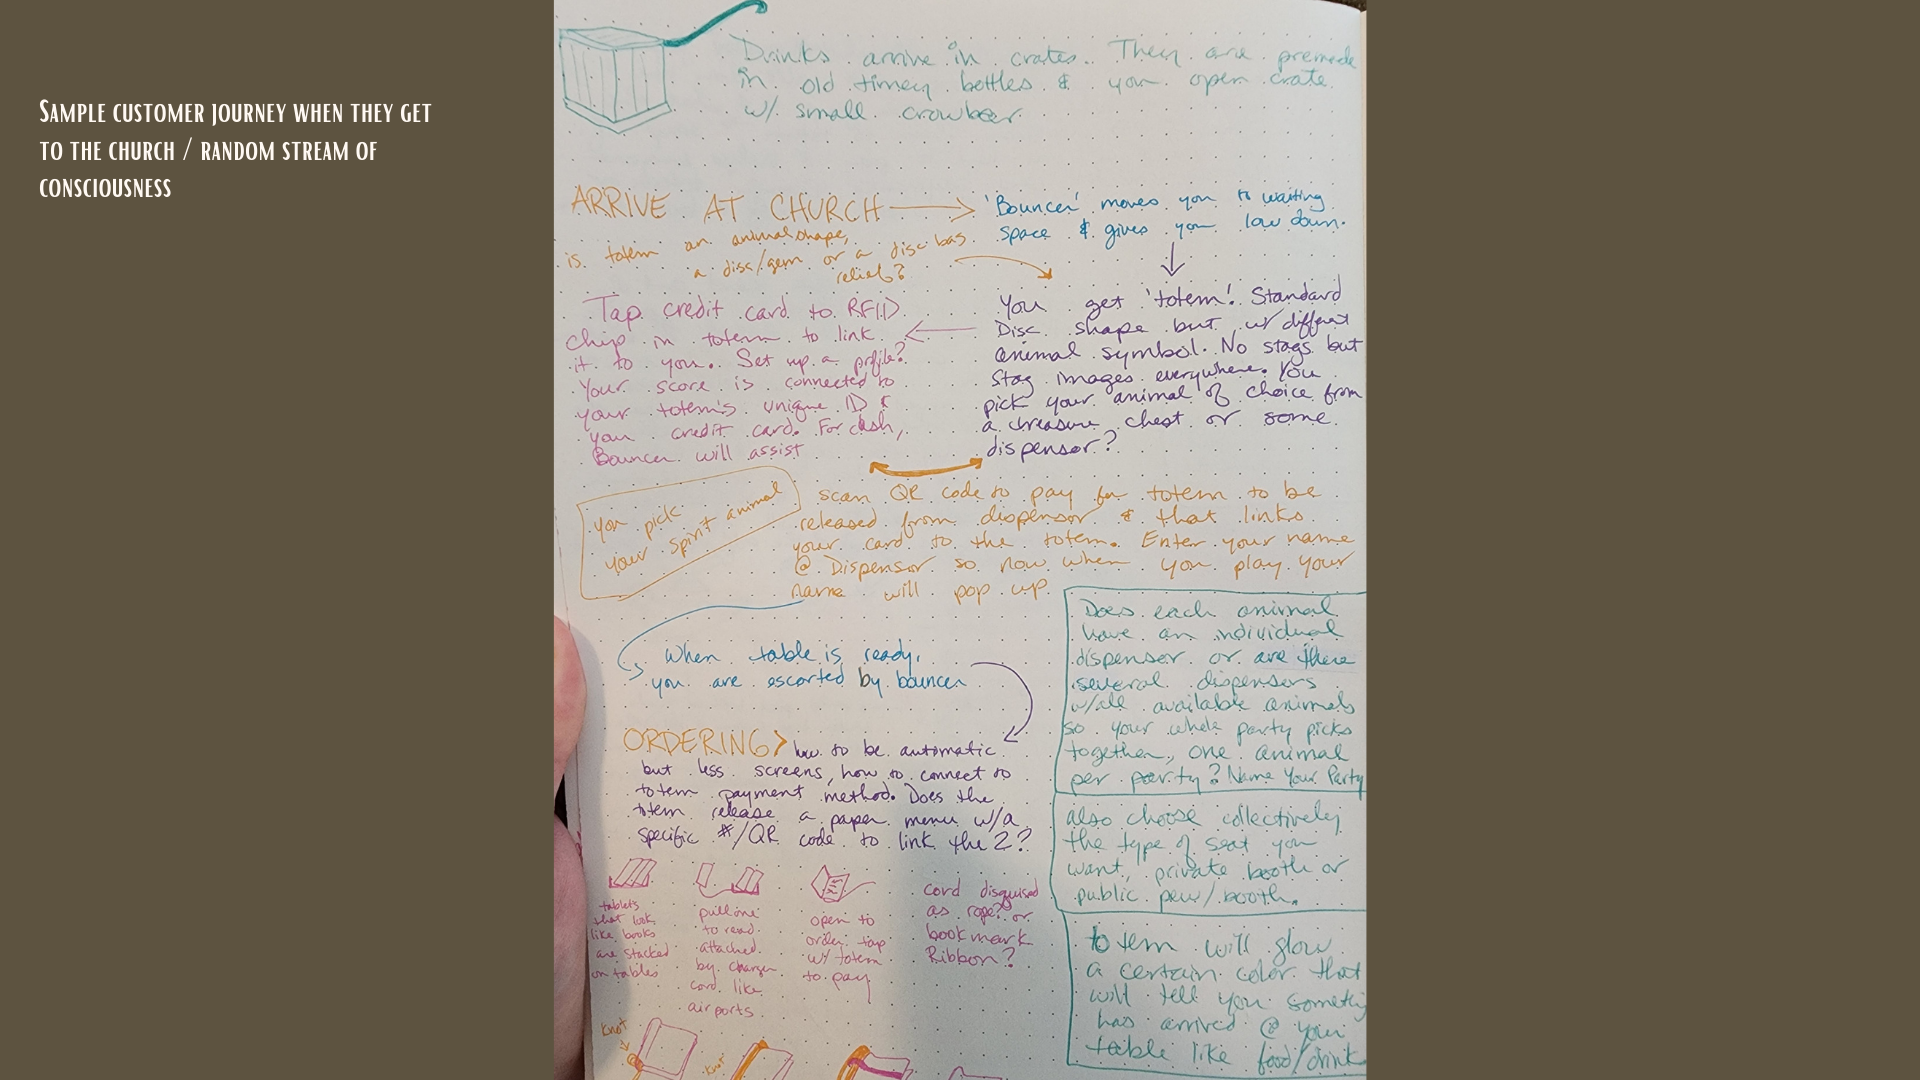 SAMPLE CUSTOMER JOURNEY WHEN THEY GET
TO THE CHURCH / RANDOM STREAM OF
CONSCIOUSNESS
Drinks arrive in crates. They are premade
in old timey bottles & you open crate
w/ small crowbar.
ARRIVE AT CHURCH
'Bouncer' moves you to waiting
space & gives you low down.
is totem an animal shape,
a disc/gem or a disc bas
relief?
You get 'totem'! Standard
Disc shape but w/ different
animal symbol. No stags but
stag images everywhere. You
pick your animal of choice from
a treasure chest or some
dispensor?
Tap credit card to RFID
chip in totem to link
it to you. Set up a profile?
Your score is connected to
your totem's unique ID &
your credit card. For cash,
Bouncer will assist
you pick
your spirit animal
scan QR code to pay for totem to be
released from dispensor & that links
your card to the totem. Enter your name
@ Dispensor so now when you play your
name will pop up.
When table is ready,
you are escorted by bouncer
ORDERING> how to be automatic
but less screens, how to connect to
totem payment method. Does the
totem release a paper menu w/a
specific #/QR code to link the 2?
Does each animal
have an individual
dispensor or are there
several dispensers
w/all available animals
so your whole party picks
together, one animal
per party? Name Your Party
also choose collectively
the type of seat you
want, private booth or
public pew/booth.
totem will glow
a certain color that
will tell you somethi
has arrived @ your
table like food/drink
tablets
that look
like books
are stacked
on tables
pull one
to read
attached
by charger
cord like
airports.
open to
order tap
w/ totem
to pay
cord disguised
as rope? or
bookmark
Ribbon?
Knot
Knot